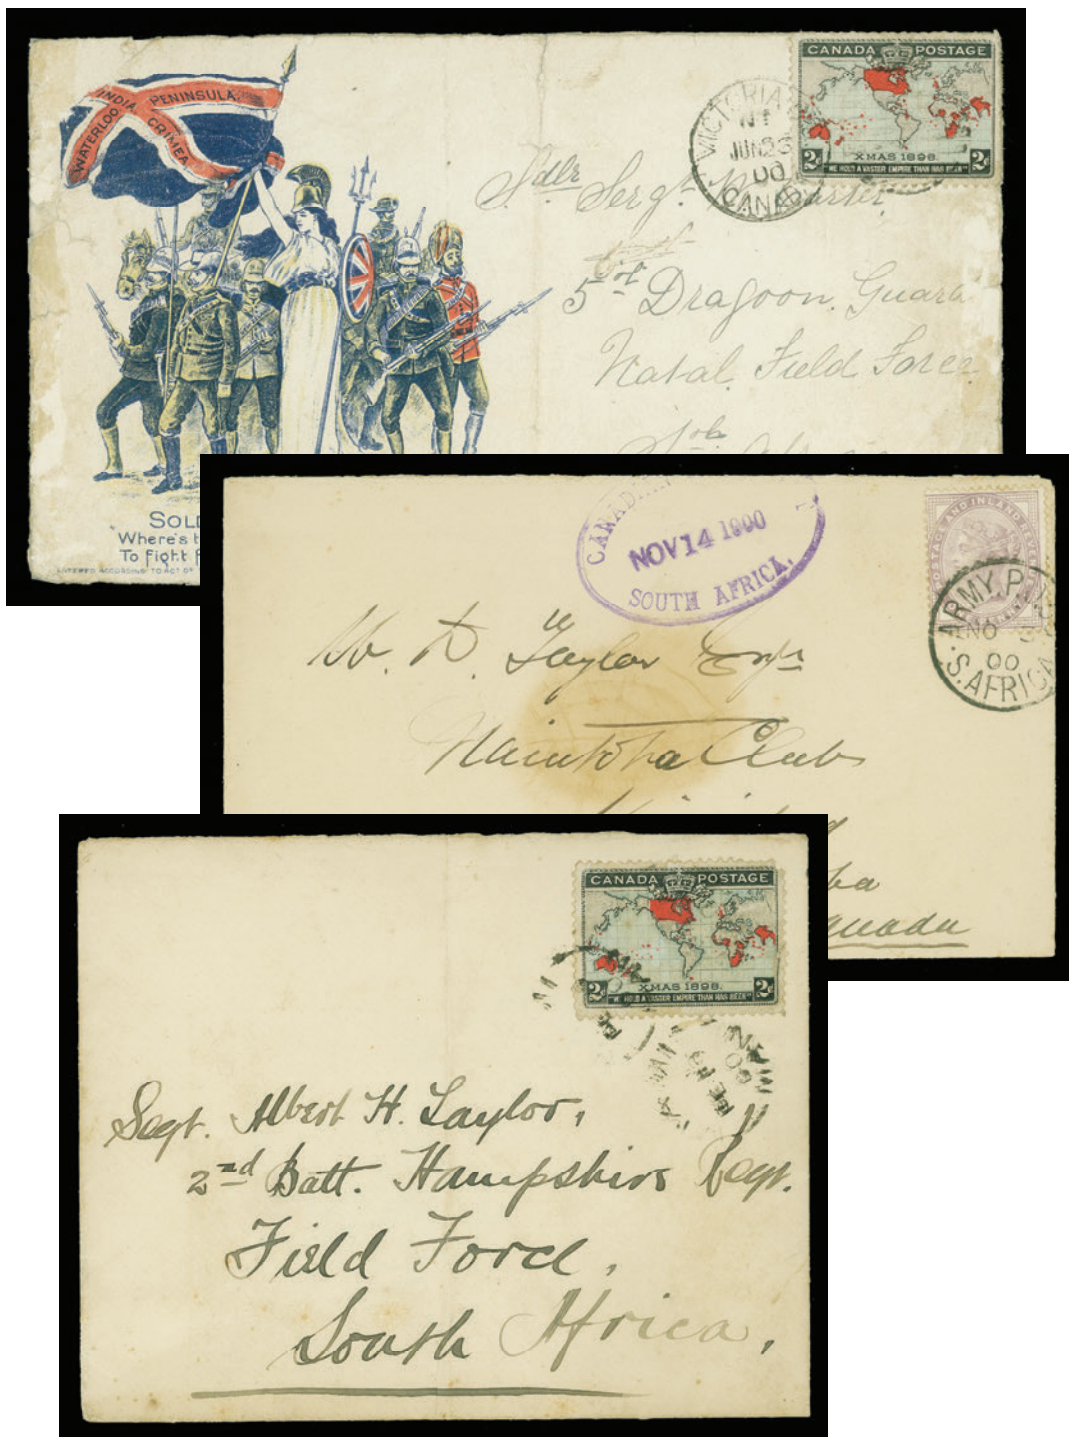 INDIA PENINSULA.
WATERLOO CRIMEA
CANADA POSTAGE
XMAS 1898.
2c 2c
"WE HOLD A VASTER EMPIRE THAN HAS BEEN"
VICTORIA
JUN 23
00
CANADA
Sdlr Sergt
5th Dragoon Guard
Natal Field Force
Sth
SOL
"Where's t
To fight f
ENTERED ACCORDING TO ACT OF
CANADIAN
NOV 14 1900
SOUTH AFRICA.
POSTAGE AND INLAND REVENUE
ARMY P.O.
NO
00
S. AFRICA
W. D. Taylor Esqr
Manitoba Club
ba
anada
CANADA POSTAGE
XMAS 1898.
2c 2c
"WE HOLD A VASTER EMPIRE THAN HAS BEEN"
Segt. Albert H. Taylor,
2nd Batt. Hampshire Regt.
Field Force,
South Africa,